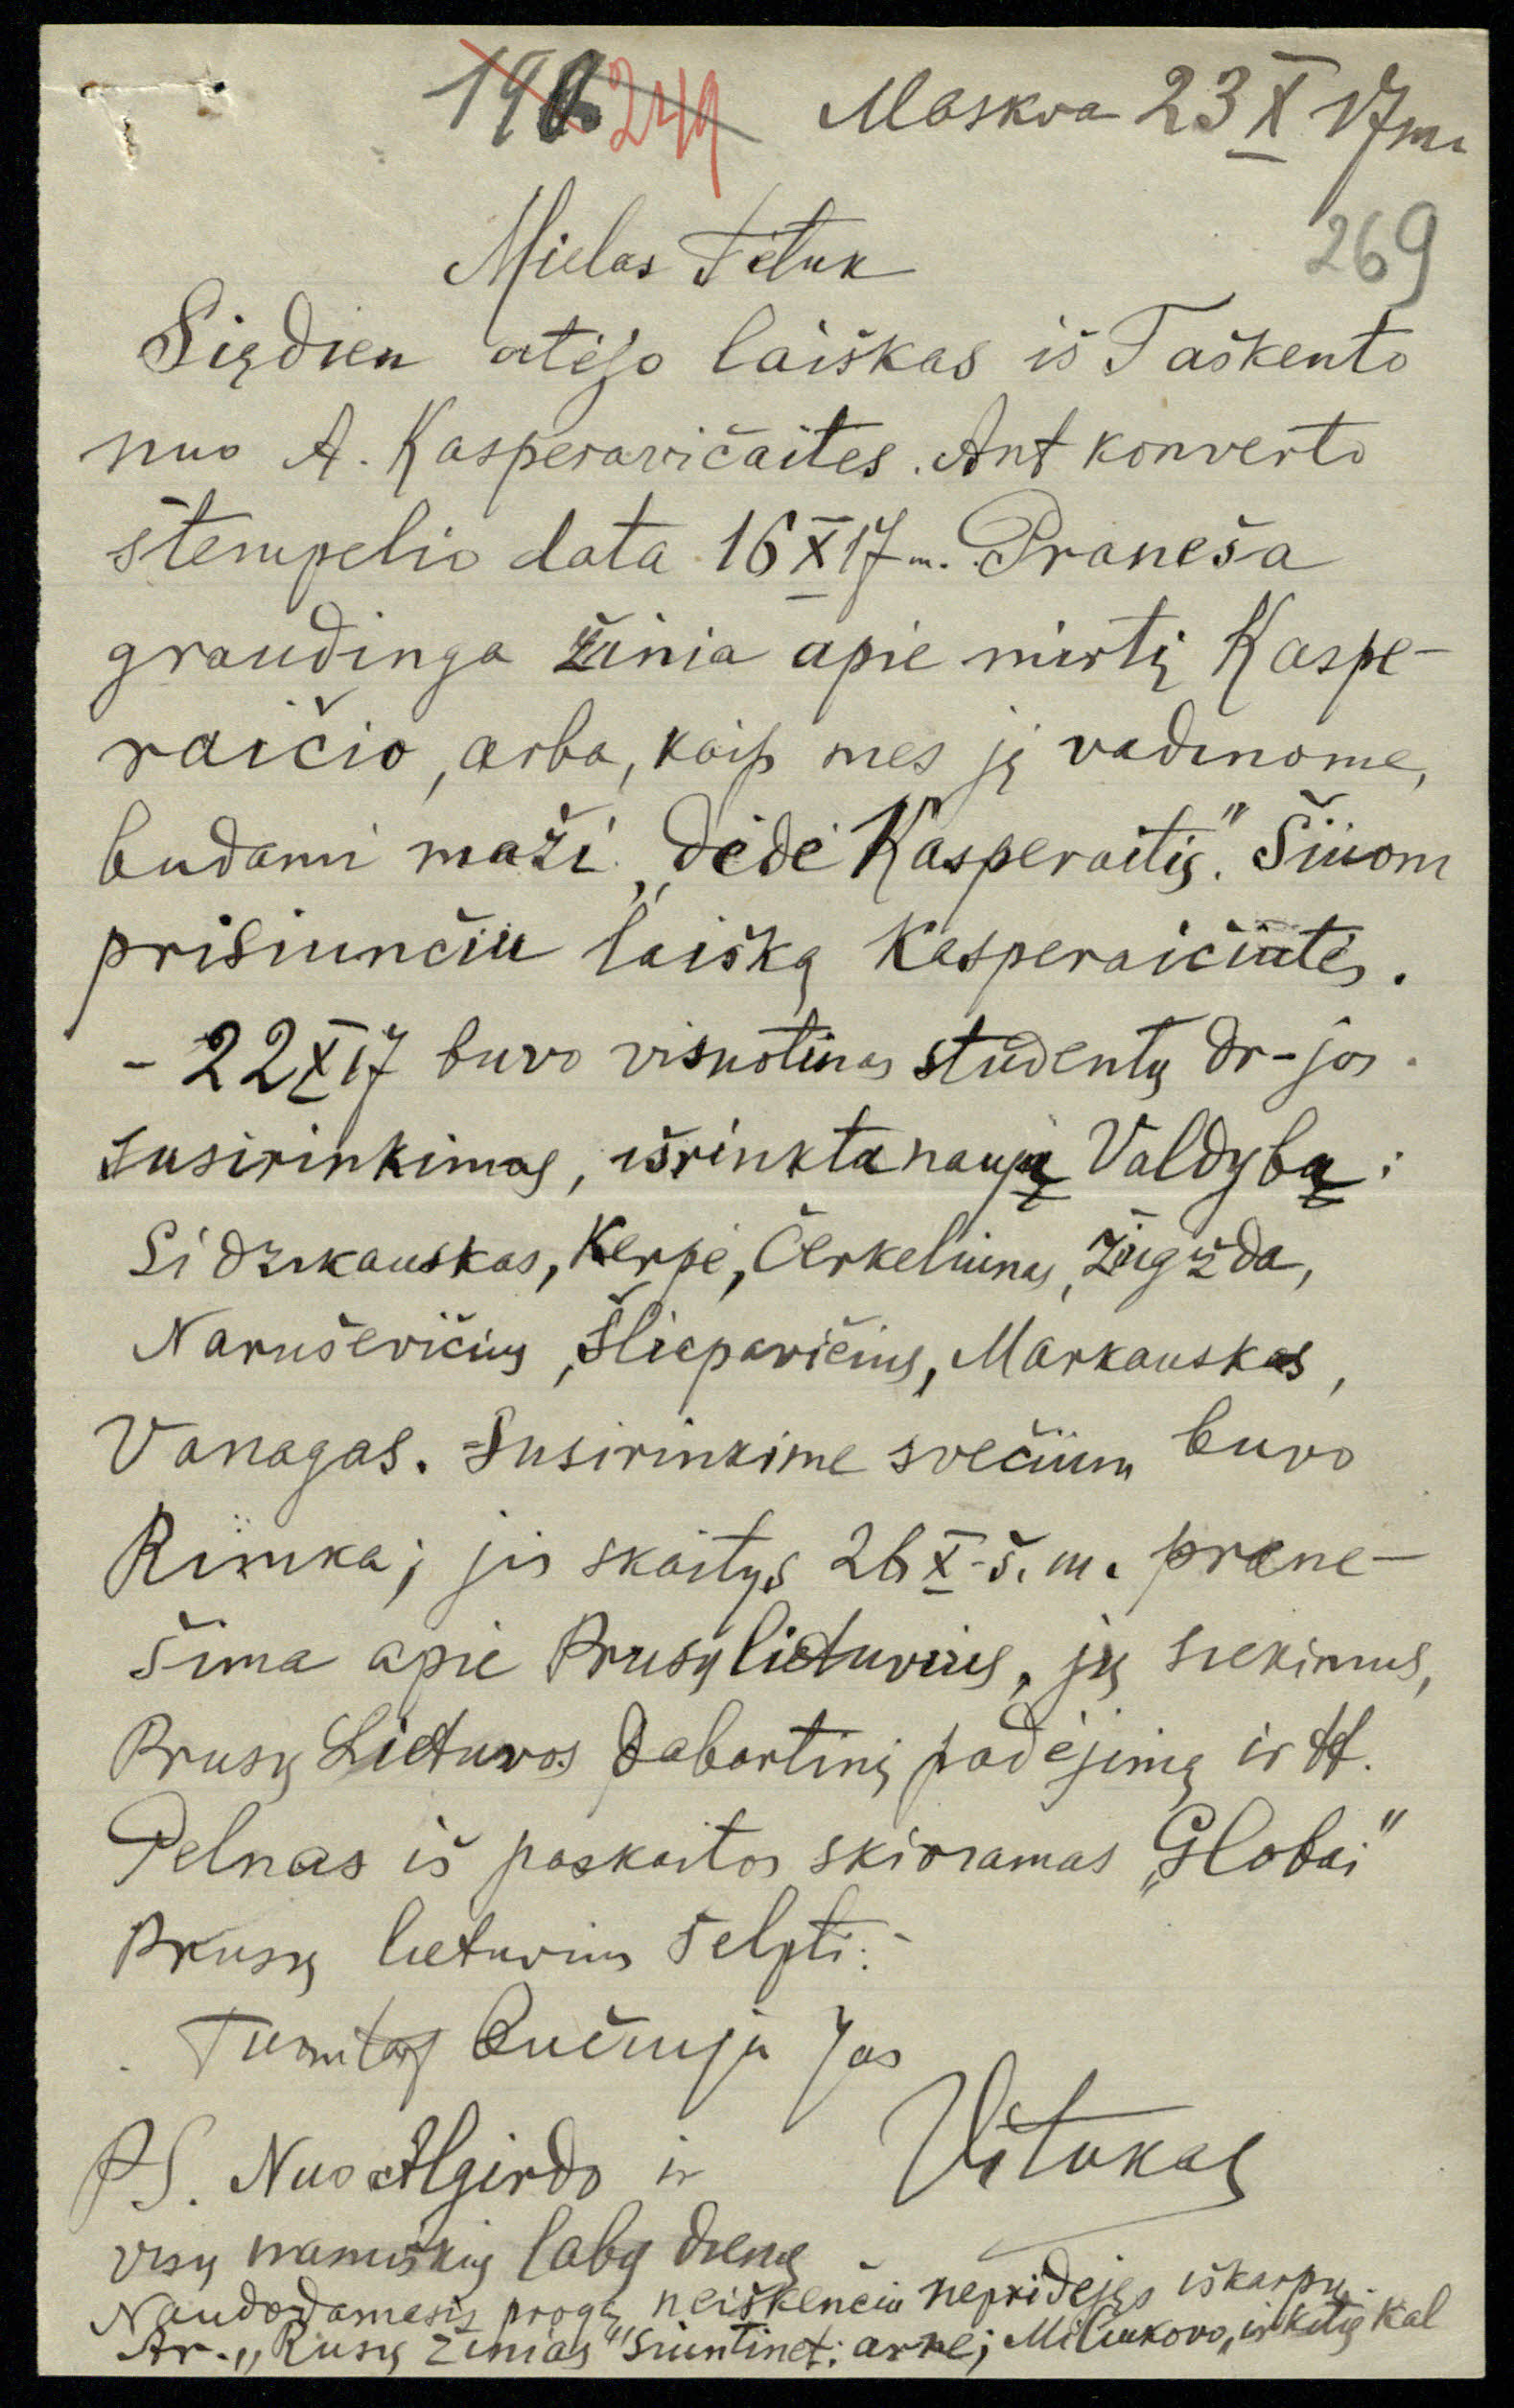 196 249 Maskva 23 X 17 m.
269
Mielas Tėtuk
Sią̨dien atėjo laiškas iš Taškento
nuo A. Kasperavičaites. Ant konverto
štempelio data 16 X 17 m. Praneša
graudinga žinia apie mirtį Kaspe-
raičio, arba, kaip mes jį vadinome,
budami maži „dėdė Kasperaitis." Šiuom
prisiunčiu laišką Kasperaičiutės.
- 22 X 17 buvo visuotinas studentų dr-jos
susirinkimas, išrinkta nauja Valdyba:
Sidzikauskas, Kerpė, Čerkeliunas, Žiugžda,
Naruševičius, Šliepavičius, Markauskas,
Vanagas. Susirinkime svečium buvo
Rimka; jis skaitys 26 X š. m. prane-
šima apie Prusų lietuvius, jų siekimus,
Prusų Lietuvos dabartinį padėjimą ir tt.
Pelnas iš paskaitos skiramas „Globai"
Prusų lietuvius šelpti.-
Tumitarf Bučiuoju Jus
Vitukas
PS. Nuo Algirdo ir
visų namiškių labą dieną
Naudodamasis proga neiškenčiu nepridėjęs iškarpų.
Ar „Rusų žinias" siuntinet: arne; Miliukovo, ir kitų kal